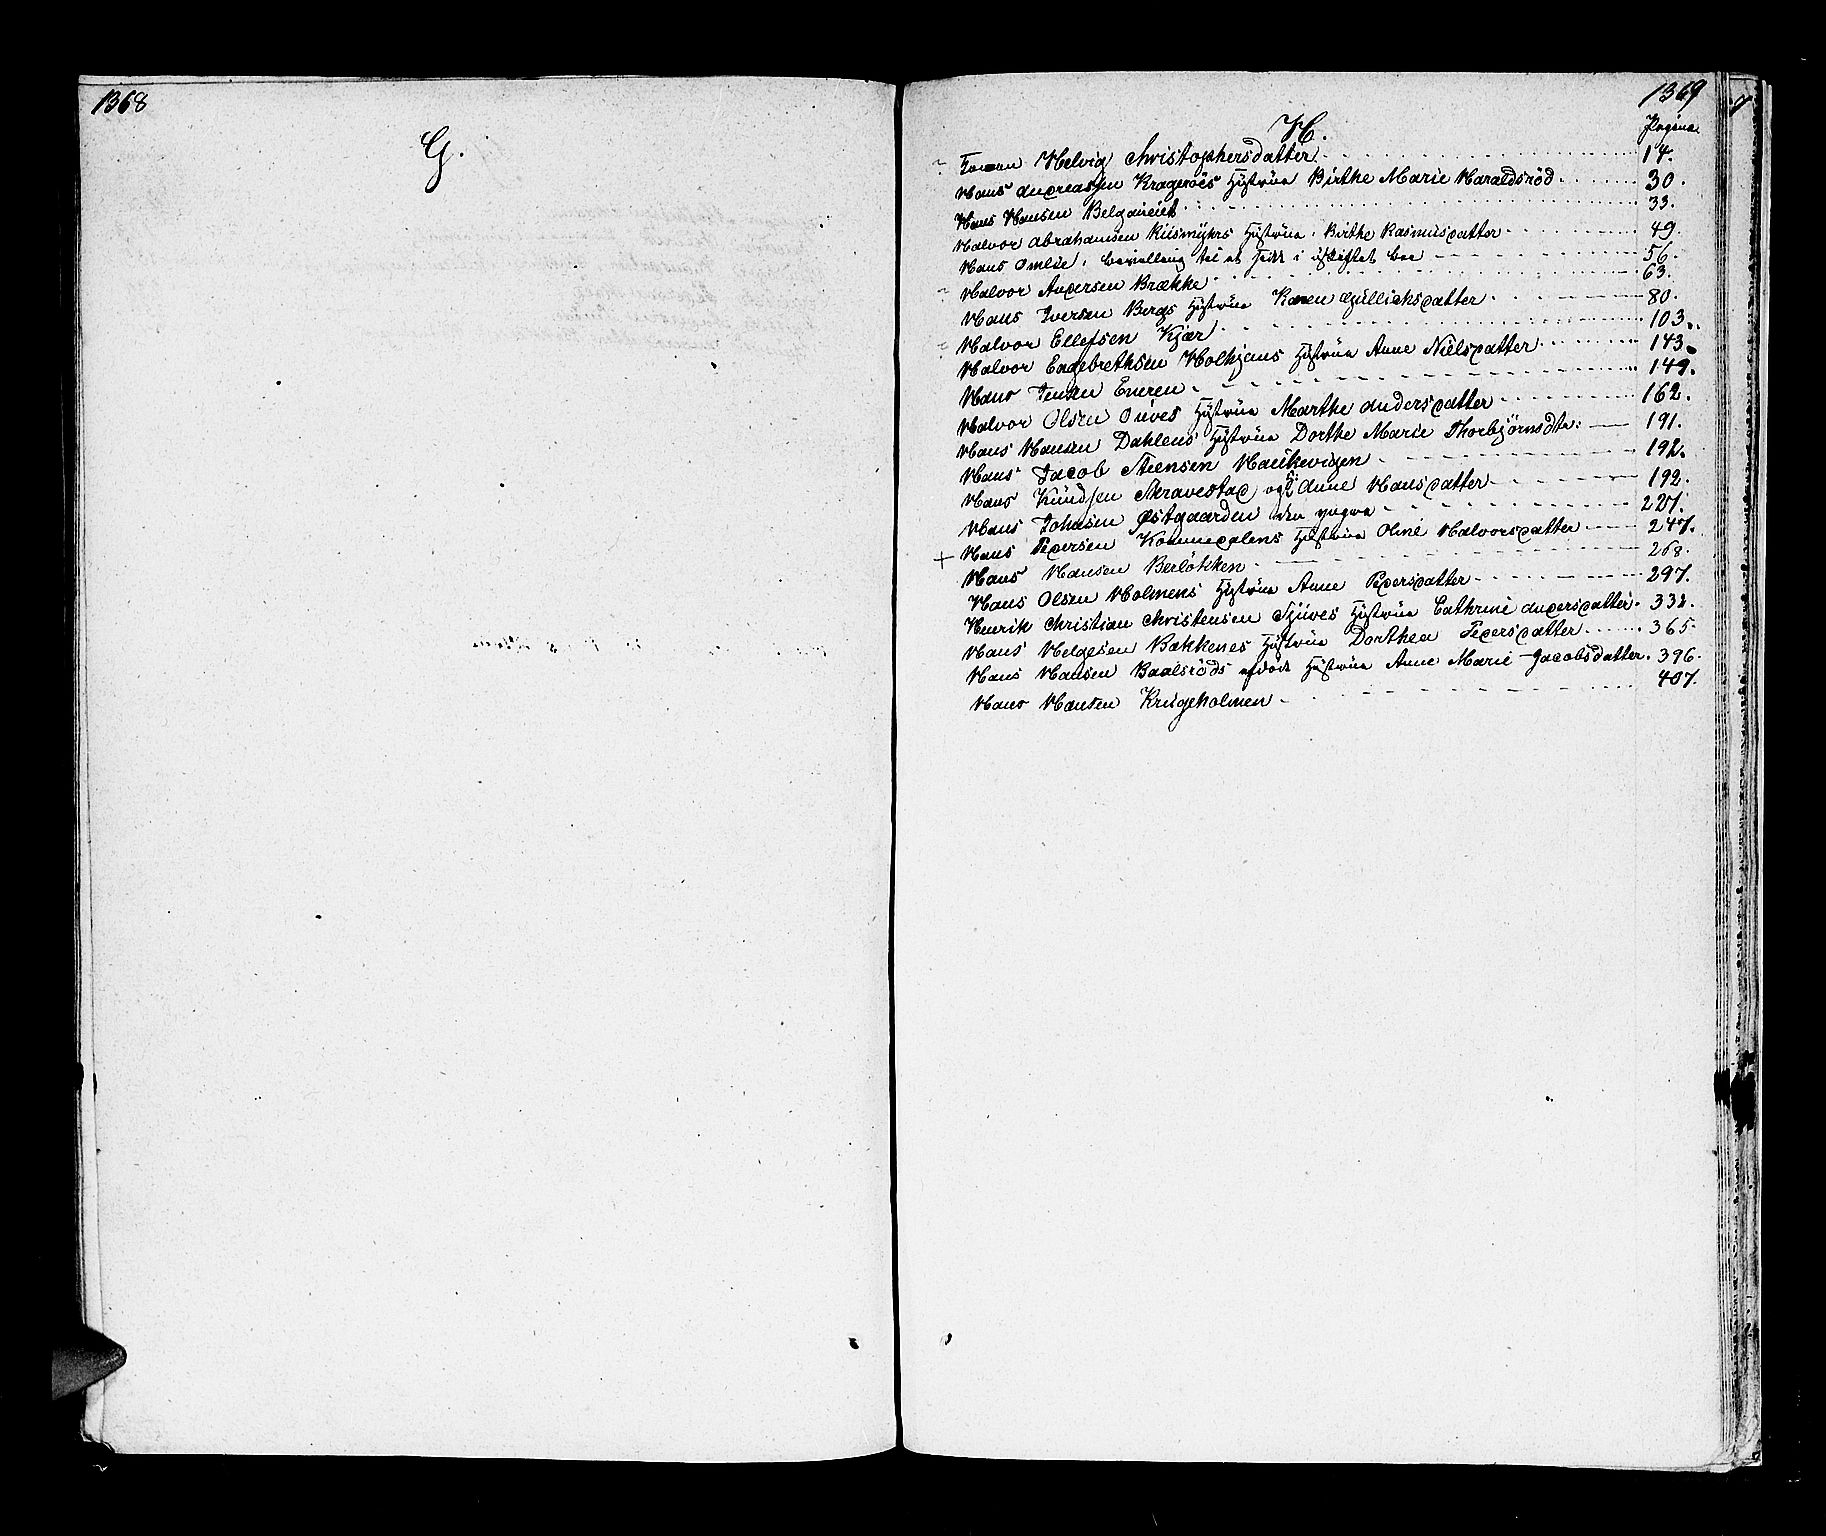 1368
G.
1369
H.
Pagina
Helvig Christophersdatter 14.
Hans Andreassen Krageröes Hüstrüe Birthe Marie Haraldsröd 30.
Hans Hansen 33.
Halvor Abrahamsen Hüstrüe Birthe Rasmusdatter 49.
Hans Omlie, bevilling til at sidde i uskiftet boe 56.
Halvor Andersen Brække 63.
Hans Iversen Bergs Hüstrüe Karen Güllichsdatter 80.
Halvor Ellefsen Kjær 103.
Halvor Engebrethsen Hüstrüe Anne Nielsdatter 143.
Hans Jensen Eneren 149.
Halvor Olsen Hüstrüe Marthe Andersdatter 162.
Hans Hansen Dahlens Hüstrüe Dorthe Marie Thorbjörnsdtr: 191.
Hans Jacob Steensen Haukevigen 192.
Hans Knüdsen og Anne Hansdatter 192.
Hans Johnsen Østgaarden den yngre 227.
+ Hans Pedersen Hüstrüe Oline Halvorsdatter 247.
Hans Hansen 268.
Hans Olsen Holmens Hüstrüe Anne Pedersdatter 297.
Henrik Christian Christensen Hüstrüe Cathrine Andersdatter 332.
Hans Helgesen Bakkenes Hüstrüe Dorthea Pedersdatter 365.
Hans Hansen Baalsröds Hüstrüe Anne Marie Jacobsdatter 396.
Hans Hansen Krügeholmen 407.